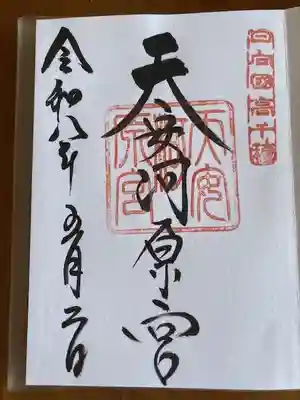 日向國高千穂
天安河原宮
天安
河原
宮
令和八年五月二日